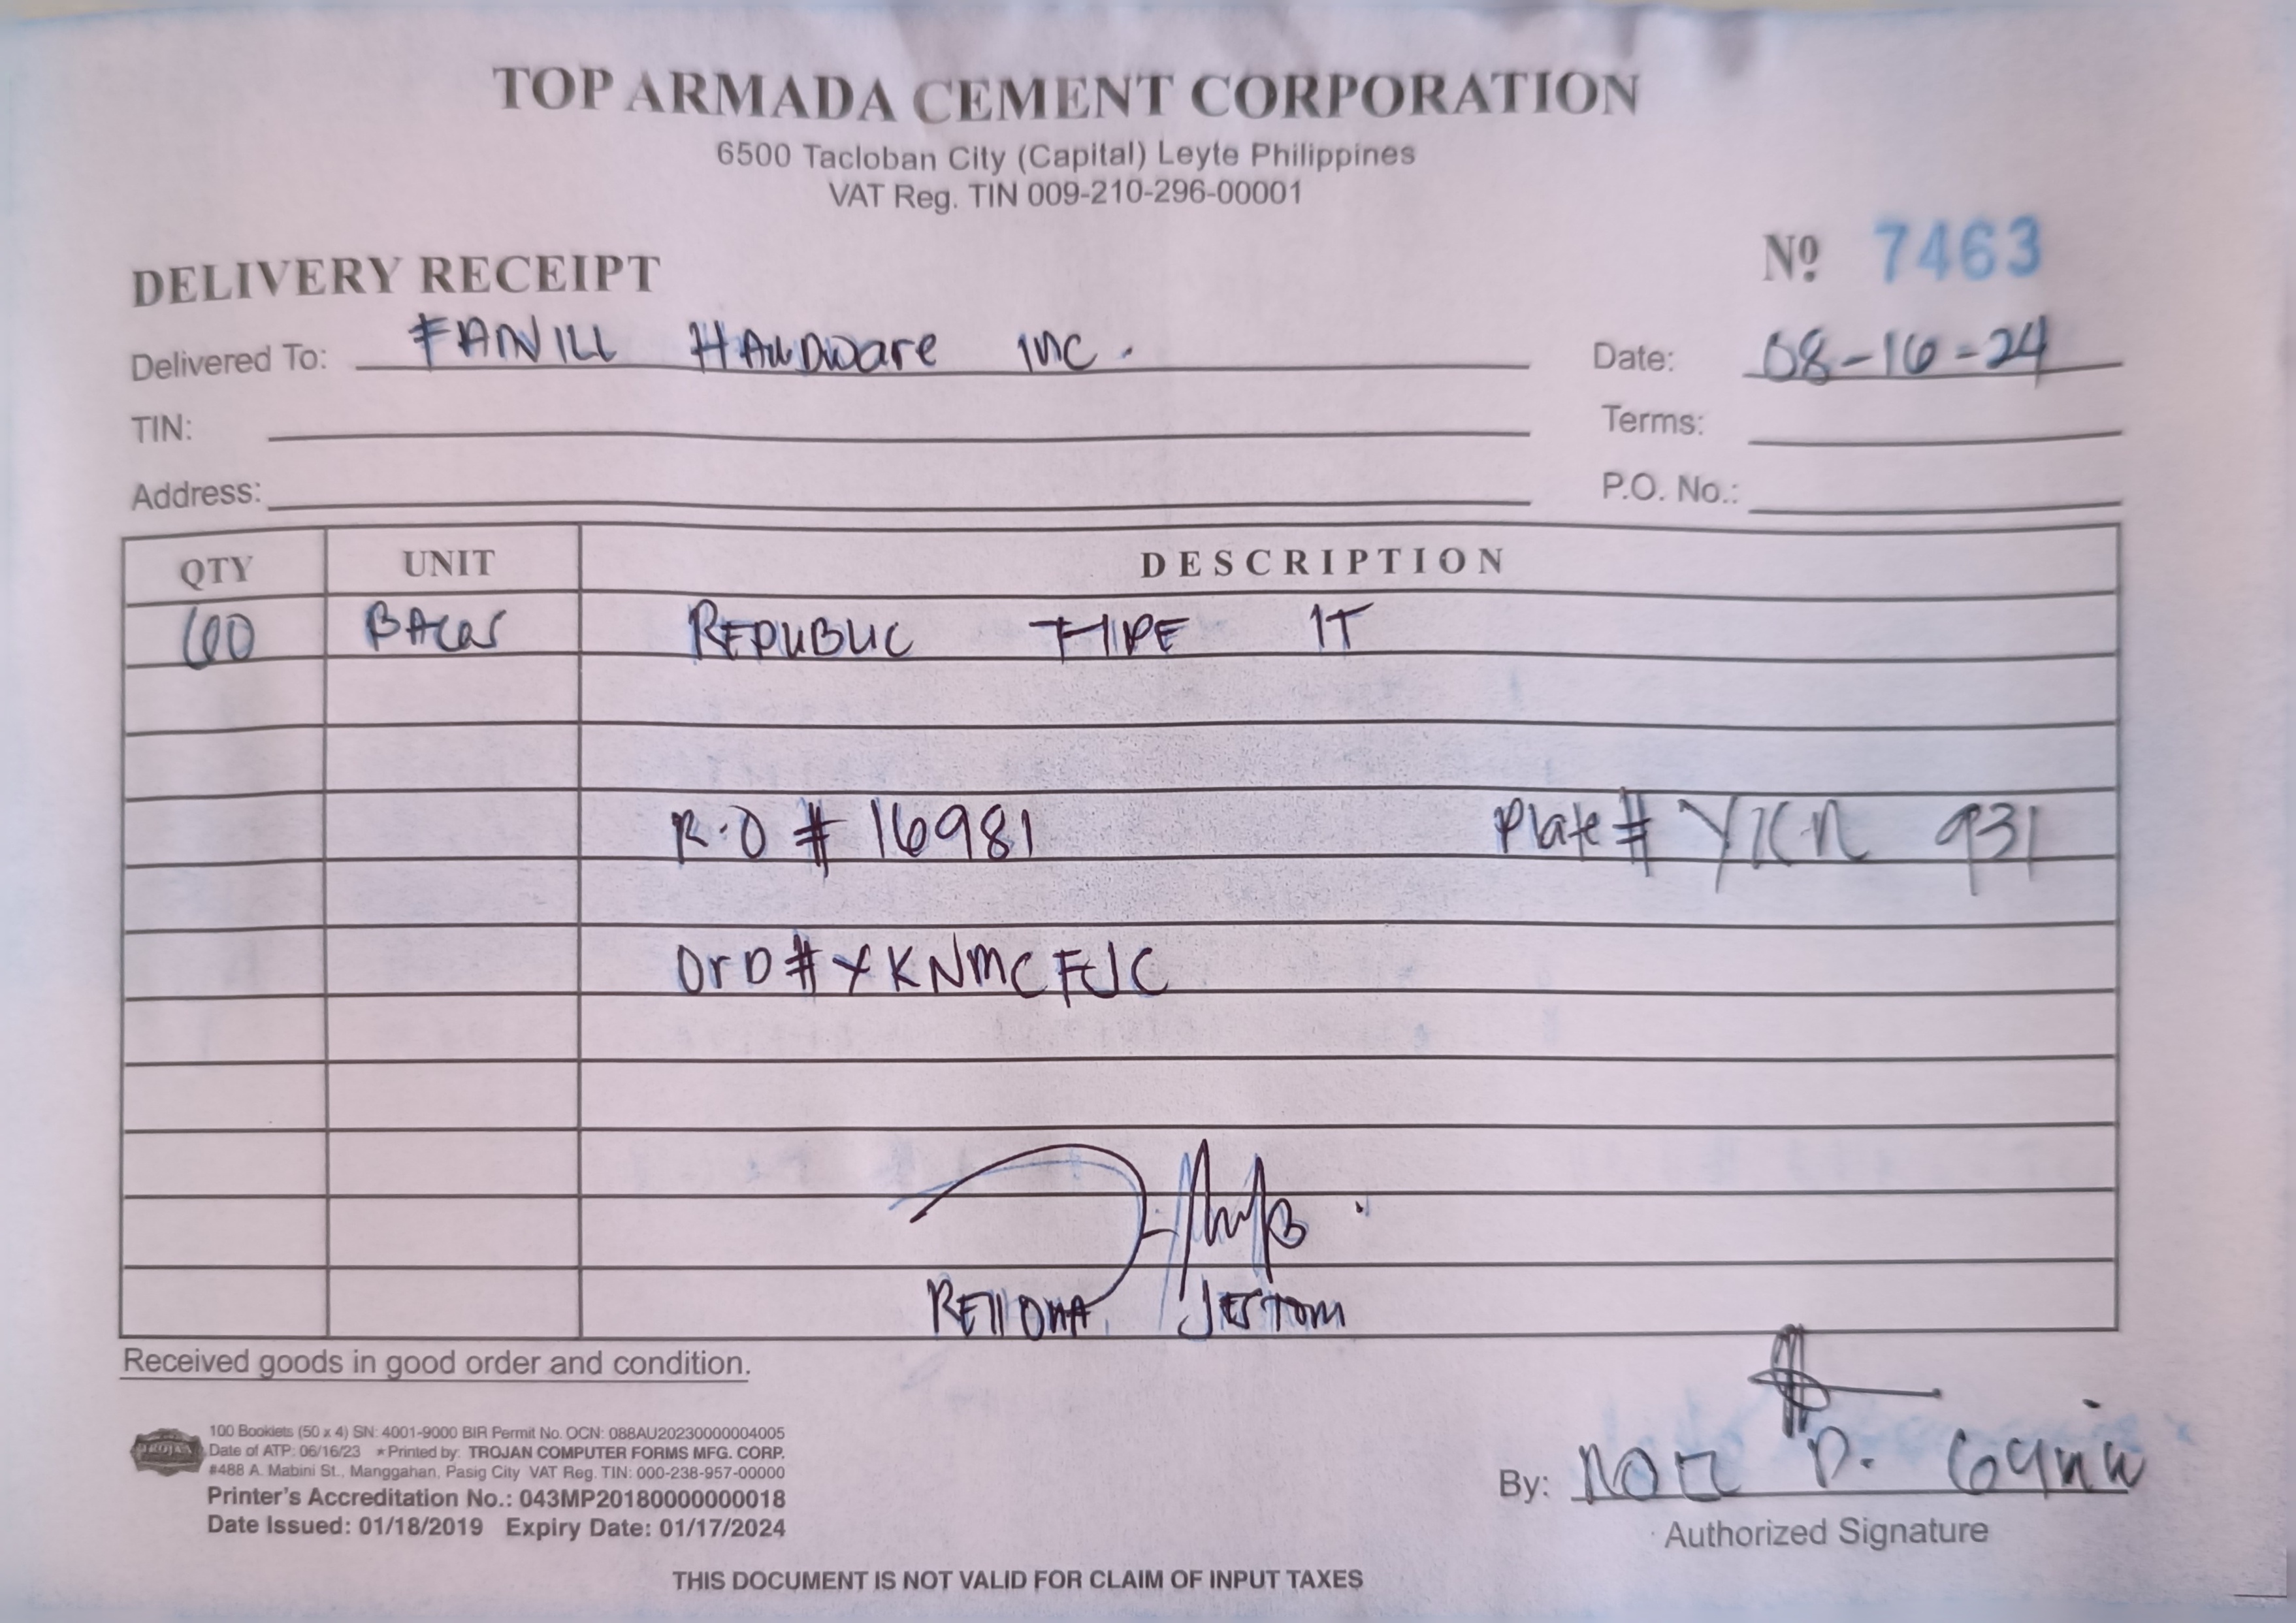 TOP ARMADA CEMENT CORPORATION
6500 Tacloban City (Capital) Leyte Philippines
VAT Reg. TIN 009-210-296-00001
DELIVERY RECEIPT
Nº 7463
Delivered To: FANILL HARDware inc.
Date: 08-16-24
TIN:
Terms:
Address:
P.O. No.:
QTY UNIT DESCRIPTION
60 BAGS REPUBLIC TYPE 1T
R.O # 16981 Plate # YKN 931
OrD # YKNMCFJC
JESTOM
Received goods in good order and condition.
100 Booklets (50 x 4) SN: 4001-9000 BIR Permit No. OCN: 088AU20230000004005
Date of ATP: 06/16/23 ★Printed by: TROJAN COMPUTER FORMS MFG. CORP.
TROJAN
#488 A. Mabini St., Manggahan, Pasig City VAT Reg. TIN: 000-238-957-00000
Printer's Accreditation No.: 043MP20180000000018
Date Issued: 01/18/2019 Expiry Date: 01/17/2024
By:
Authorized Signature
THIS DOCUMENT IS NOT VALID FOR CLAIM OF INPUT TAXES